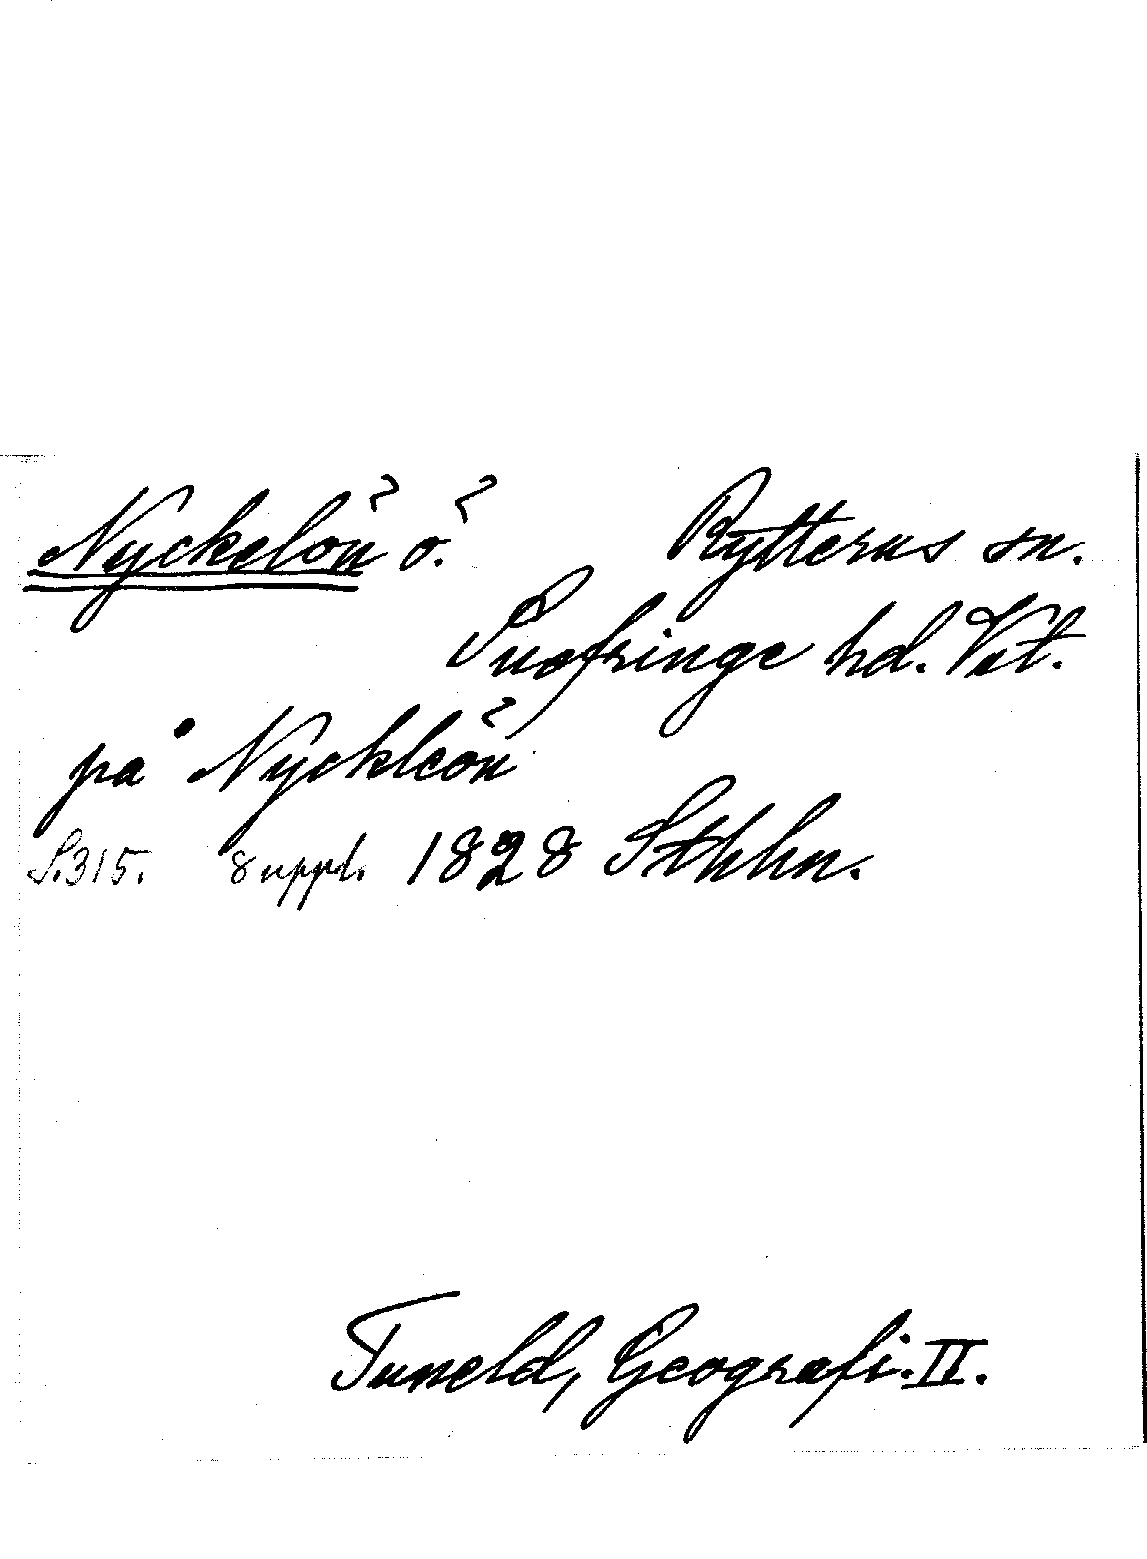 Nyckelön ö. Rytterns sn.
Snefringe hd. Vstm.
på Nyckleön
S.315. 8 uppl. 1828 Sthlm.
Tuneld, Geografi. II.